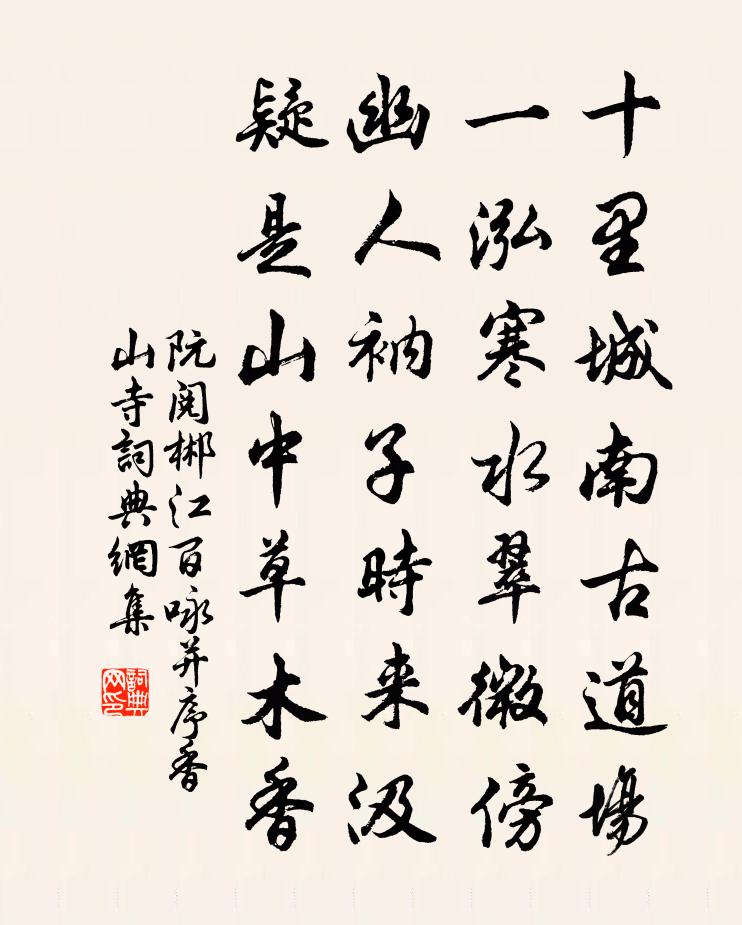 十里城南古道場
一泓寒水翠微傍
幽人衲子時来汲
疑是山中草木香
阮閱郴江百咏并序香
山寺詞典網集
詞典網印